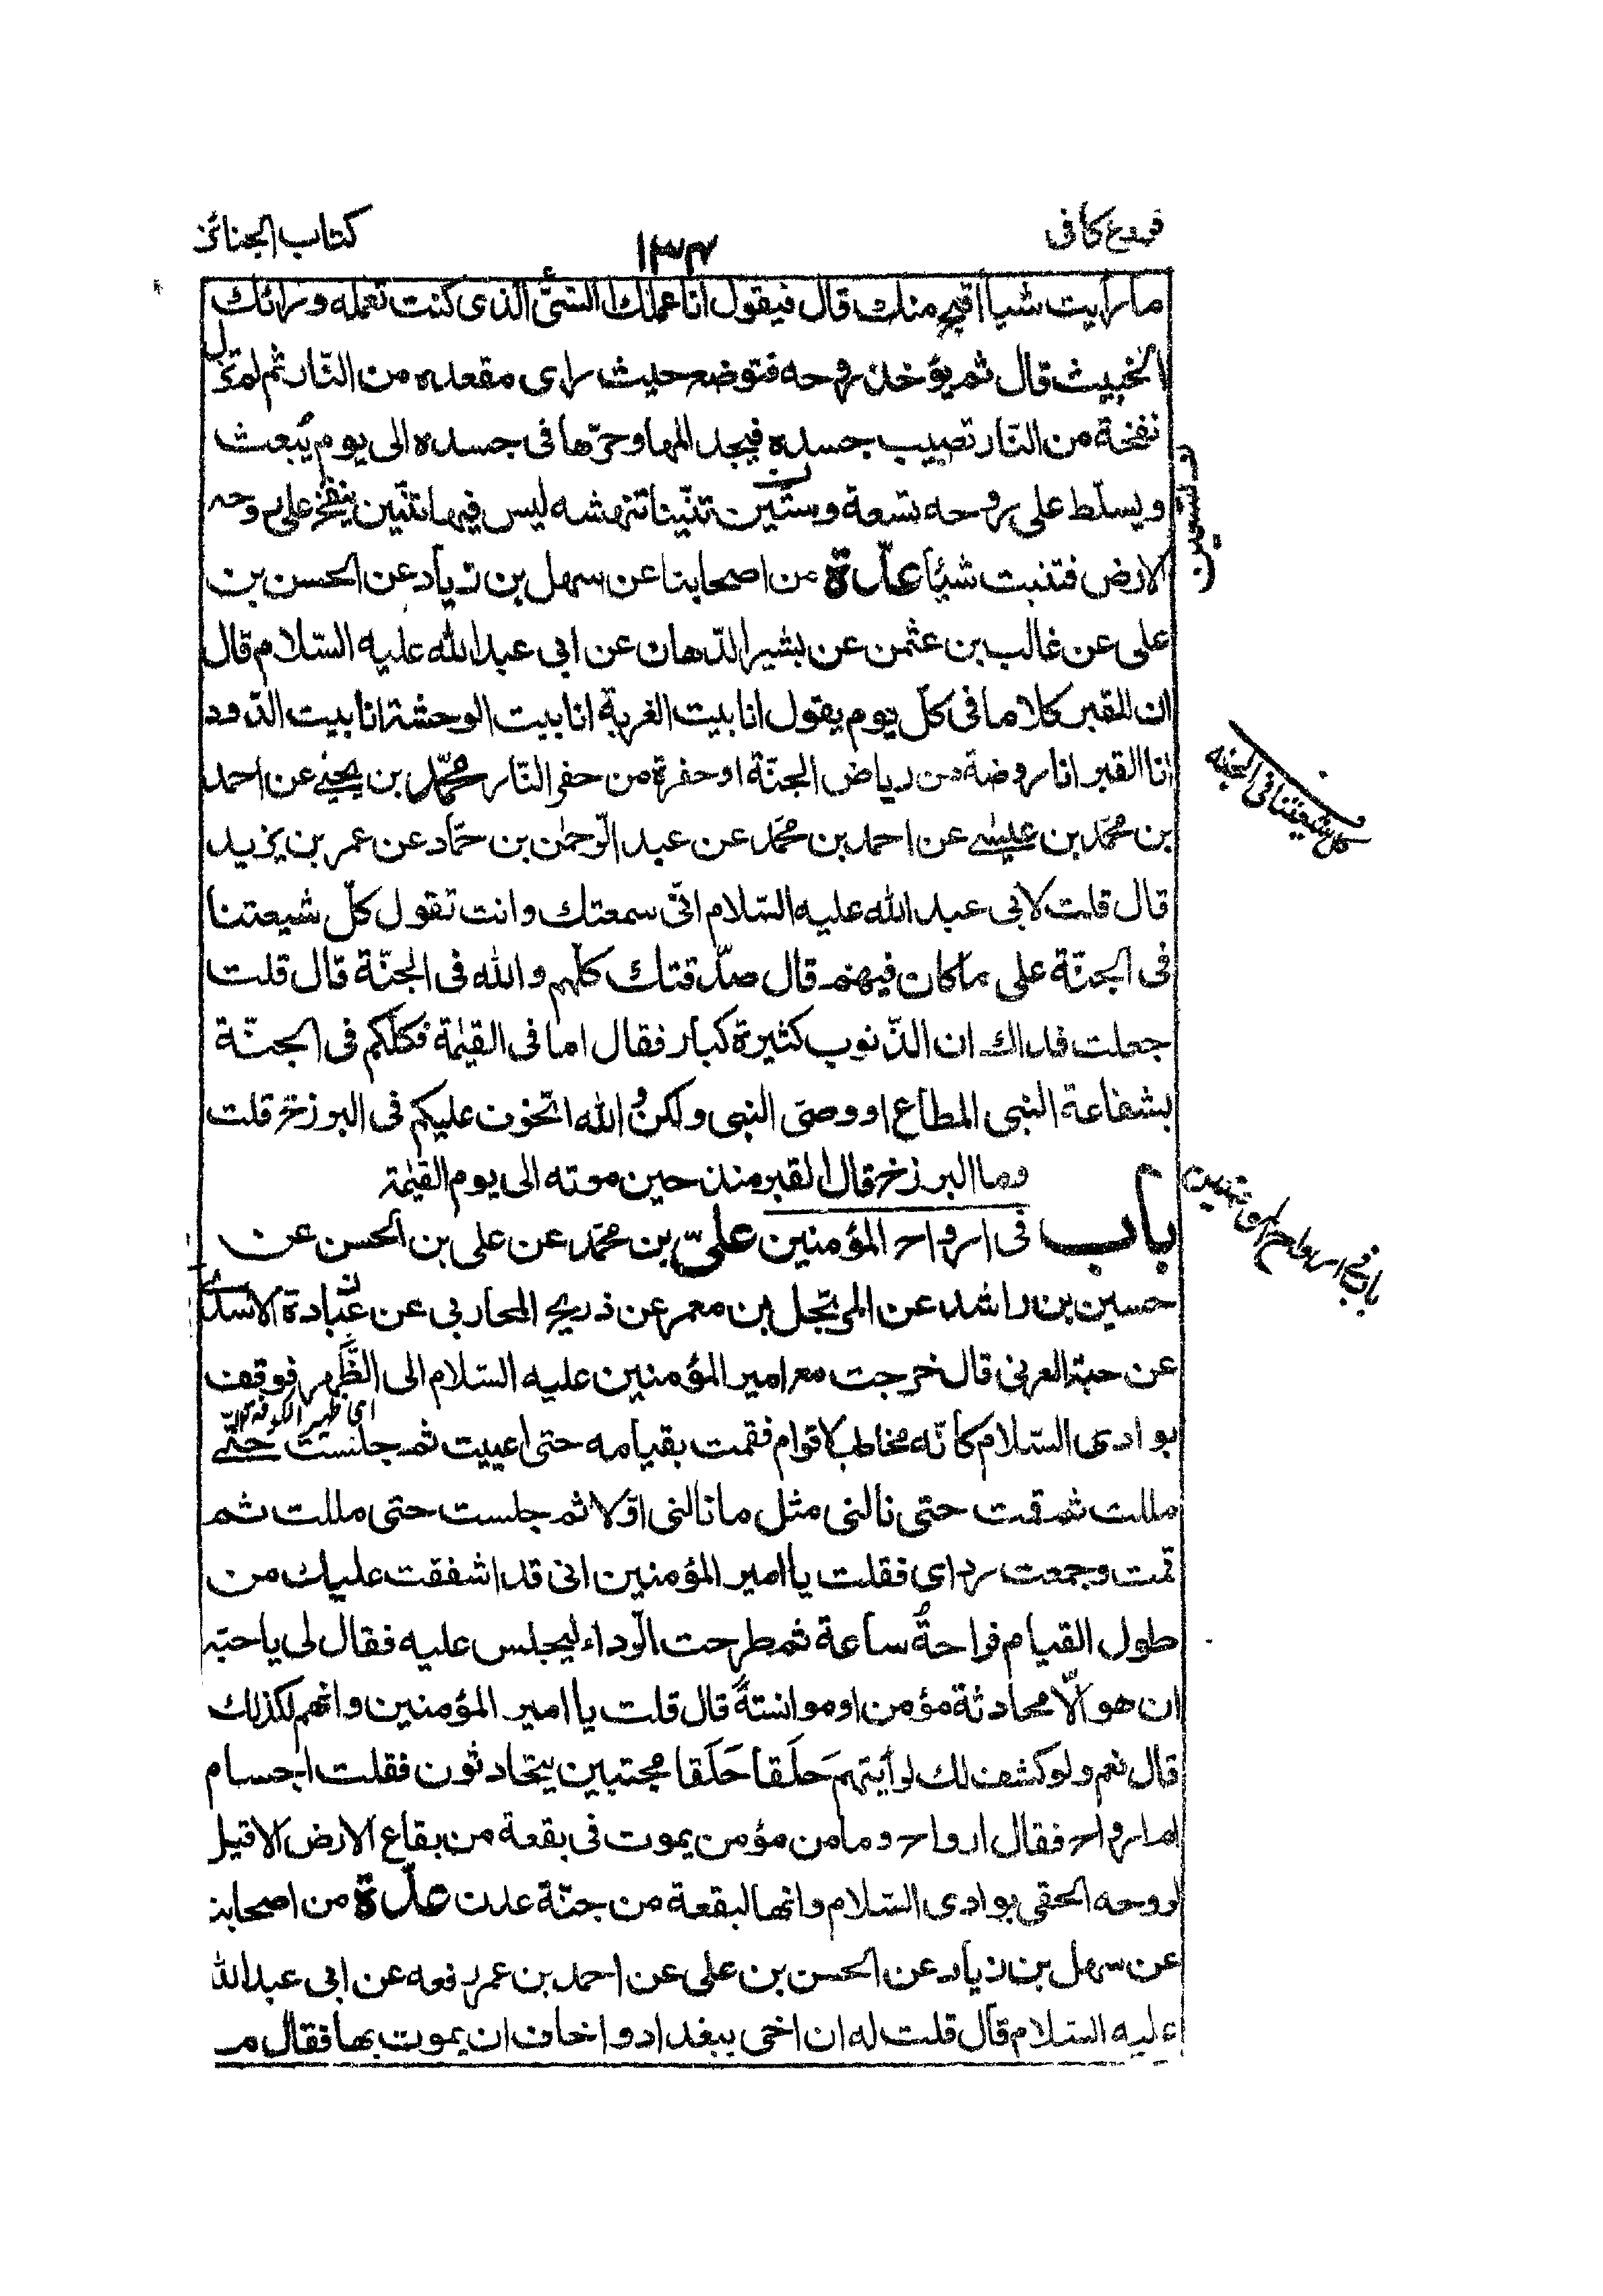 فروع كافى
۱۳۴
كتاب الجنائز
ما رايت شيأ اقبح منك قال فيقول انا عملك السّيّئ الذى كنت تعمله و رائك
الخبيث قال ثم يؤخذ روحه فتوضع حيث راى مقعده من النّار ثم لم تزل
نفخة من النّار تصيب جسده فيجد المها و حرّها فى جسده الى يوم يُبعث
و يسلّط على روحه تسعة و ستّين تنّينا تنهشه ليس فيها تنّين ينفخ على وجه
الارض فتنبت شيئا عدّة من اصحابنا عن سهل بن زياد عن الحسن بن
على عن غالب بن عثمن عن بشير الدّهان عن ابى عبد الله عليه السّلام قال
ان للقبر كلاما فى كلّ يوم يقول انا بيت الغربة انا بيت الوحشة انا بيت الدّود
انا القبر انا روضة من رياض الجنّة او حفرة من حفر النّار محمّد بن يحيٰى عن احمد
بن محمّد بن عيسٰى عن احمد بن محمّد عن عبد الرّحمٰن بن حمّاد عن عمر بن يزيد
قال قلت لابى عبد الله عليه السّلام انّى سمعتك و انت تقول كلّ شيعتنا
فى الجنّة على ما كان فيهم قال صدّقتك كلّهم و الله فى الجنّة قال قلت
جعلت فداك ان الذّنوب كثيرة كبار فقال اما فى القيٰمة فكلّكم فى الجنّة
بشفاعة النبى المطاع او وصىّ النبى و لكن و الله اتخوف عليكم فى البرزخ قلت
و ما البرزخ قال القبر منذ حين موته الى يوم القيٰمة
باب فى ارواح المؤمنين علىّ بن محمّد عن على بن الحسن عن
حسين بن راشد عن المرتجل بن معمر عن ذريح المحاربى عن عبادة الاسدى
عن حبة العرنى قال خرجت مع امير المؤمنين عليه السّلام الى الظَّهر فوقف
اى ظهر الكوفة
بوادى السّلام كانّه مخاطب لاقوام فقمت بقيامه حتى اعييت ثم جلست حتّى
مللت ثم قمت حتى نالنى مثل ما نالنى اوّلا ثم جلست حتى مللت ثم
قمت و جمعت رداى فقلت يا امير المؤمنين انى قد اشفقت عليك من
طول القيام فراحةُ ساعة ثم طرحت الرّداء ليجلس عليه فقال لى يا حبّة
ان هو الّا محادثة مؤمن او موانسته قال قلت يا امير المؤمنين و انهم لكذلك
قال نعم و لو كشف لك لرأيتهم حَلَقا حَلَقا محتبين يتحادثون فقلت اجسام
ام ارواح فقال ارواح و ما من مؤمن يموت فى بقعة من بقاع الارض الا قيل
لروحه الحقى بوادى السّلام و انها لبقعة من جنّة عدن عدّة من اصحابنا
عن سهل بن زياد عن الحسن بن على عن احمد بن عمر رفعه عن ابى عبد الله
عليه السّلام قال قلت له ان اخى ببغداد و اخاف ان يموت بها فقال م
و تسعين
كل شيعتنا فى الجنة
باب فى ارواح المؤمنين